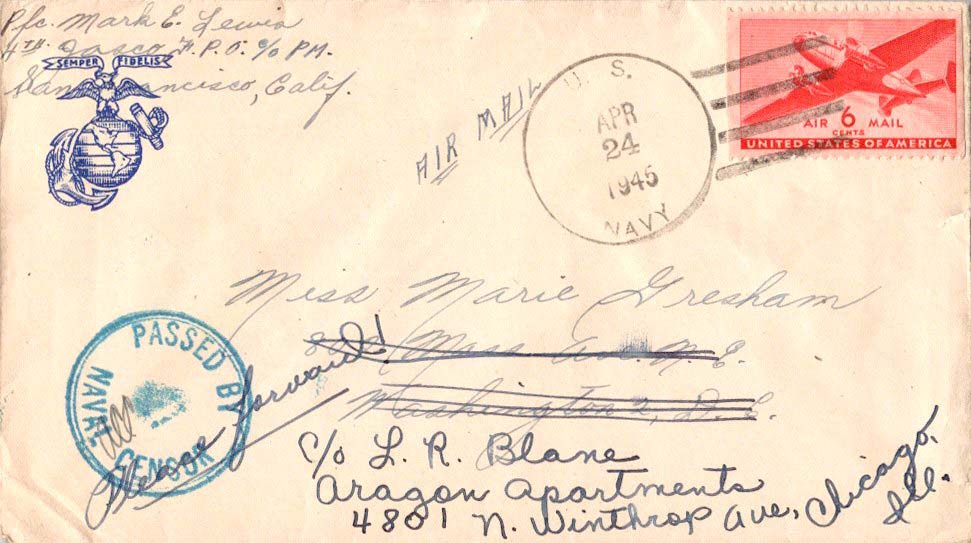 Pfc. Mark E. Lewis
4TH Jasco F.P.O. c/o PM.
San Francisco, Calif.
SEMPER FIDELIS
AIR MAIL
U. S.
APR
24
1945
NAVY
AIR 6 MAIL
CENTS
UNITED STATES OF AMERICA
Miss Marie Gresham
Mass Ave N.E.
Washington 2, D.C.
PASSED BY
NAVAL CENSOR
Please Forward!
c/o L. R. Blane
Aragon Apartments
4801 N. Winthrop Ave, Chicago, Ill.